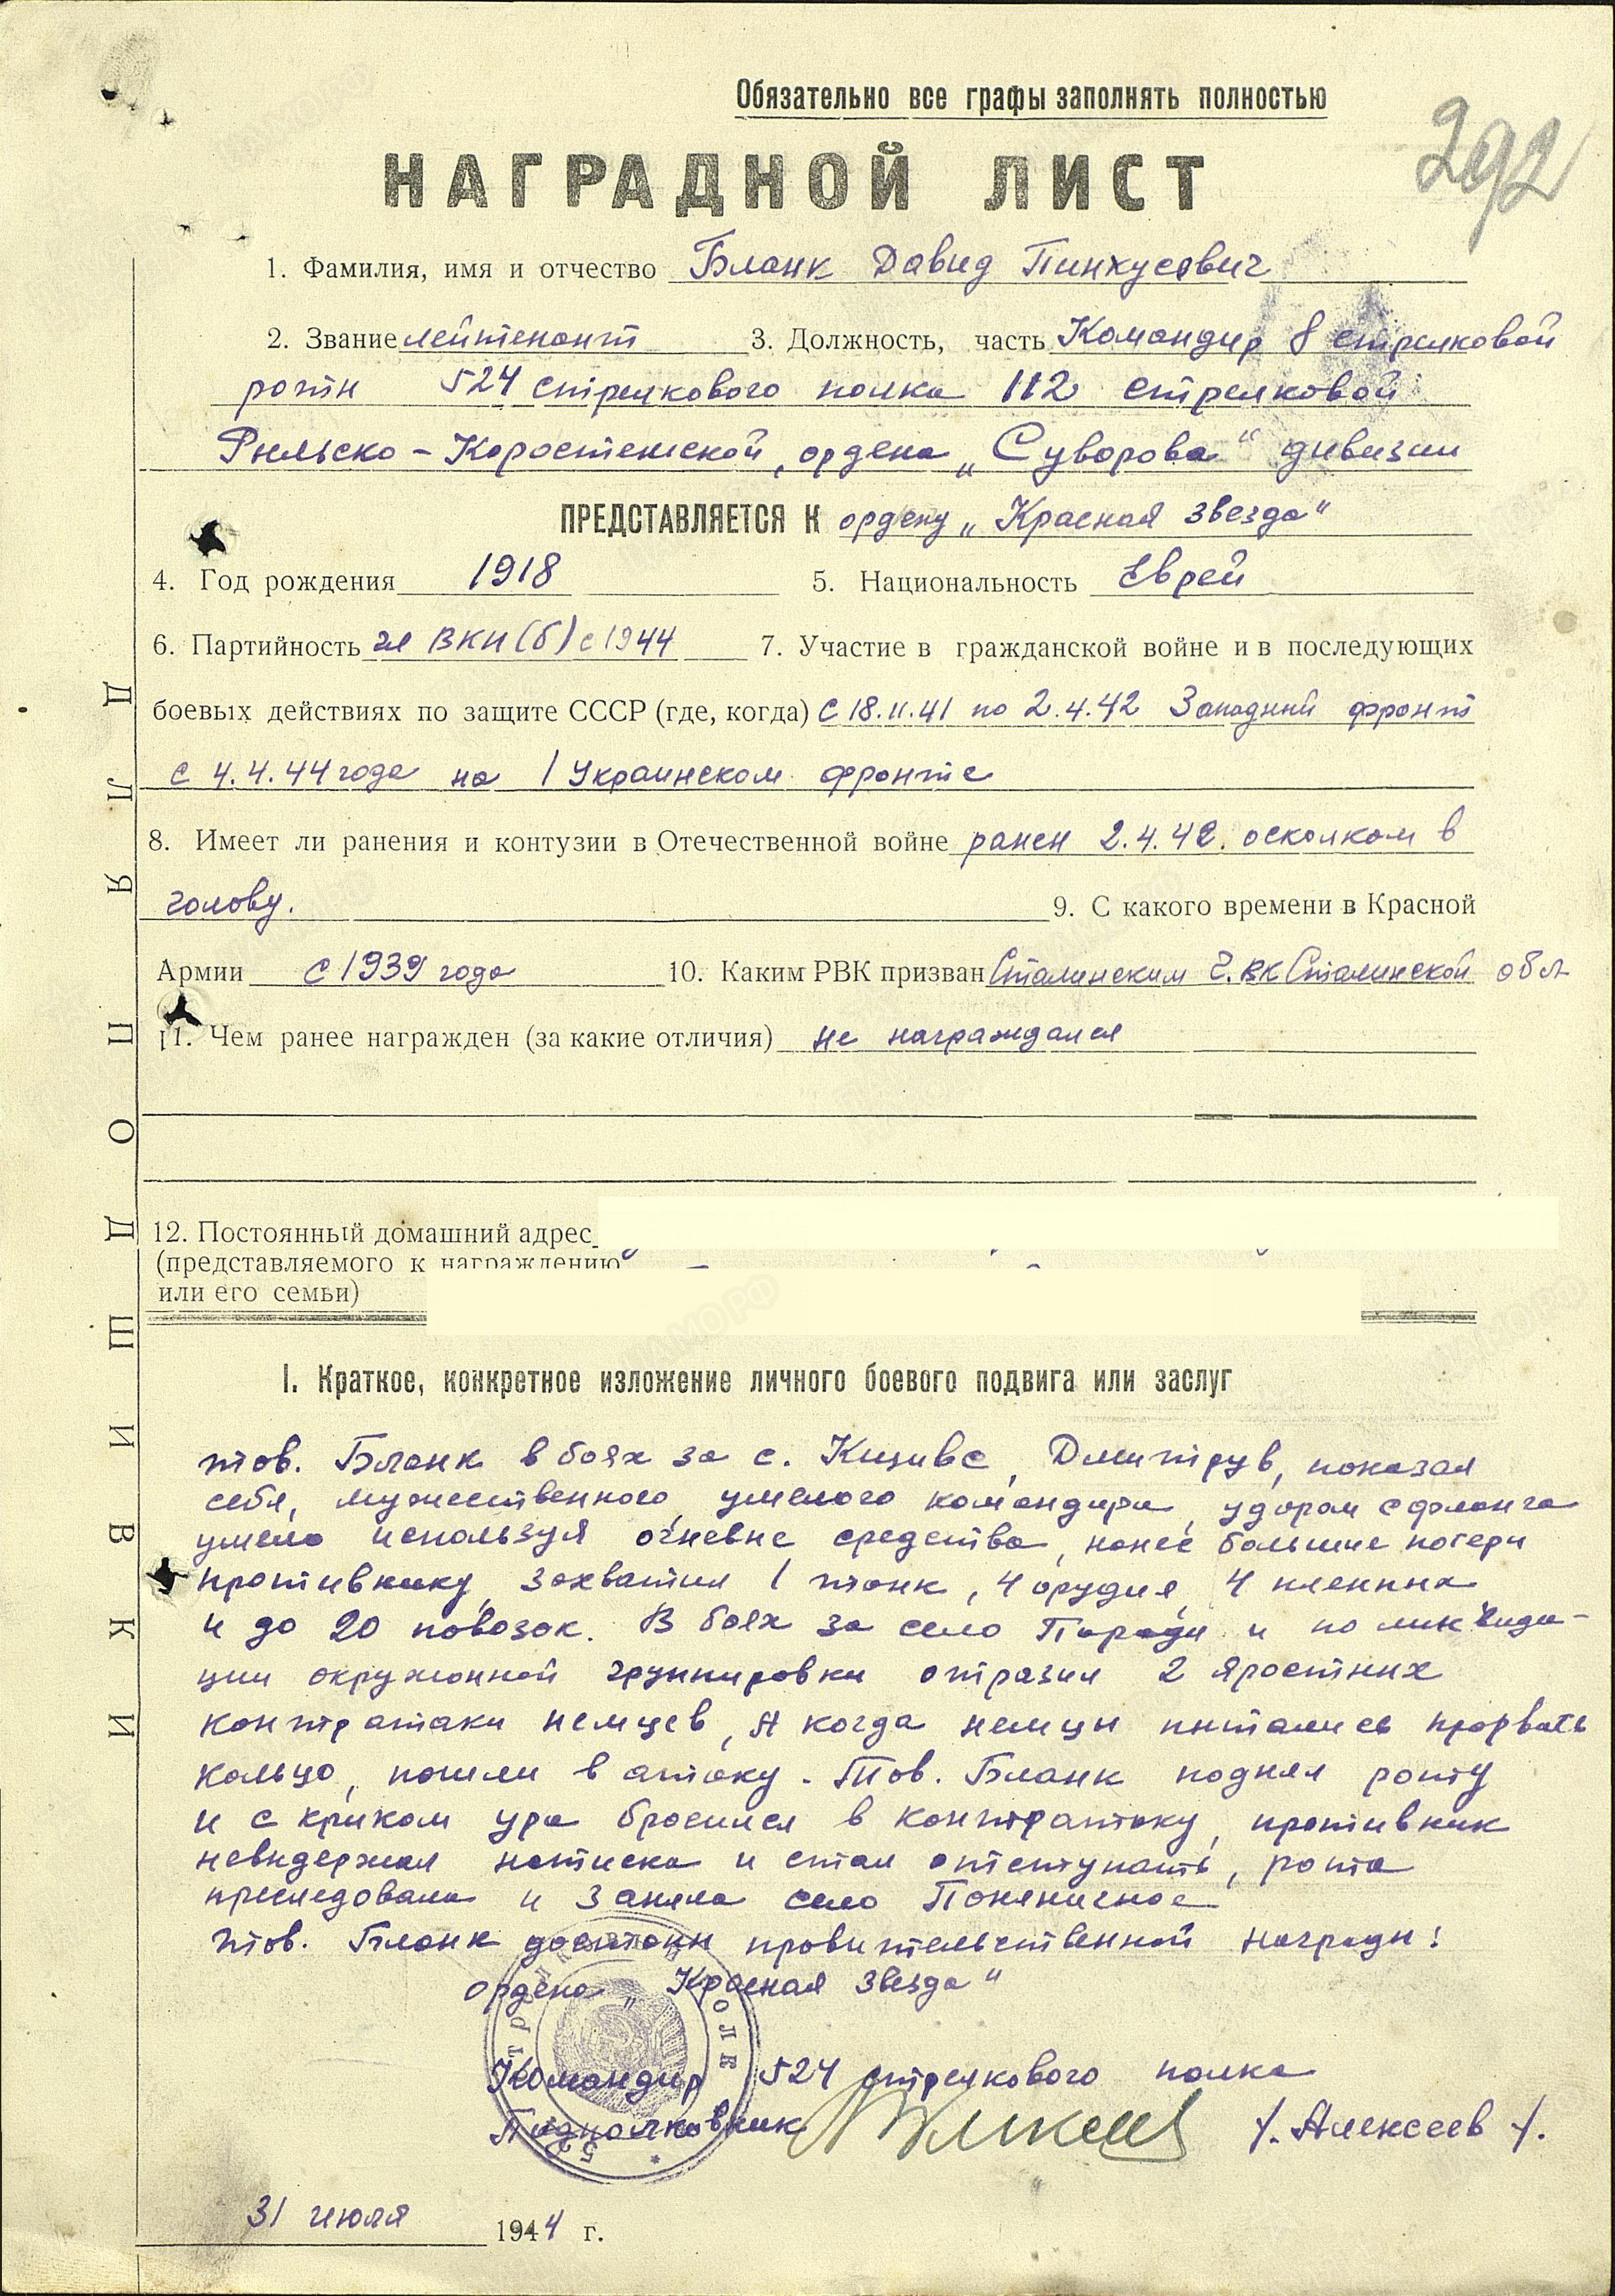 Обязательно все графы заполнять полностью
292
НАГРАДНОЙ ЛИСТ
1. Фамилия, имя и отчество Бланк Давид Пинхусович
2. Звание лейтенант 3. Должность, часть Командир 8 стрелковой
роты 524 стрелкового полка 112 стрелковой
Рыльско-Коростенской, ордена „Суворова" дивизии
ПРЕДСТАВЛЯЕТСЯ К ордену „Красная звезда"
4. Год рождения 1918 5. Национальность Еврей
6. Партийность чл ВКП(б) с 1944 7. Участие в гражданской войне и в последующих
боевых действиях по защите СССР (где, когда) С 18.11.41 по 2.4.42 Западный фронт
с 4.4.44 года на 1 Украинском фронте
8. Имеет ли ранения и контузии в Отечественной войне ранен 2.4.42. осколком в
голову. 9. С какого времени в Красной
Армии с 1939 года 10. Каким РВК призван Сталинским Г.ВК Сталинской обл
11. Чем ранее награжден (за какие отличия) не награждался
12. Постоянный домашний адрес
(представляемого к награждению
или его семьи)
I. Краткое, конкретное изложение личного боевого подвига или заслуг
тов. Бланк в боях за с. Дмитрув, показал
себя, мужественного, умелого командира, ударом с фланга
умело используя огневые средства, нанес большие потери
противнику, захватил 1 танк, 4 орудия, 4 пленных
и до 20 повозок. В боях за село и по ликвида-
ции окружонной группировки отразил 2 яростных
контратаки немцев, А когда немцы пытались прорвать
кольцо, пошли в атаку. Тов. Бланк поднял роту
и с криком ура бросился в контратаку, противник
невыдержал натиска и стал отступать, рота
преследовала и заняла село
тов. Бланк достоин правительственной награды!
ордена „Красная Звезда"
Командир 524 стрелкового полка
Подполковник /. Алексеев /.
31 июля 1944 г.
ДЛЯ ПОДШИВКИ